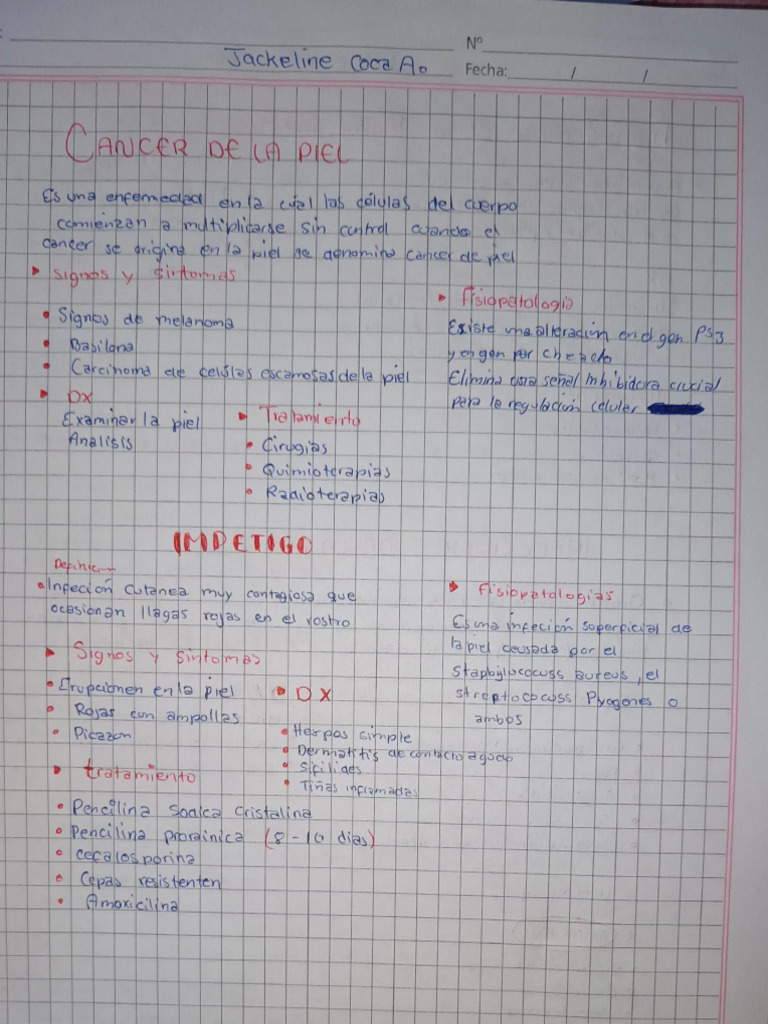 Nº
Jackeline Coca A.
Fecha: / /
CANCER DE LA PIEL
Es una enfermedad en la cual las células del cuerpo
comienzan a multiplicarse sin control cuando el
cancer se origina en la piel se denomina cancer de piel
Signos y sintomas
• Signos de melanoma
• Basiloma
• Carcinoma de celulas escamosas de la piel
DX
Examinar la piel
Analisis
Tratamiento
• Cirugias
• Quimioterapias
• Radioterapias
Fisiopatologia
Existe una alteración en el gen P53
y origen por
Elimina una señal Inhibidora crucial
para la regulación celular
IMPETIGO
• Infeción cutanea muy contagiosa que
ocasionan llagas rojas en el rostro
Signos y sintomas
• Erupcionen en la piel
• Rojas con ampollas
• Picazon
DX
• Herpes simple
• Dermatitis de contacto agudo
• Sifilides
• Tiñas inflamadas
tratamiento
• Pencilina Sodica Cristalina
• Pencilina procainica (8-10 dias)
• cecalosporina
• Cepas resistenten
• Amoxicilina
Fisiopatologias
Es una infeción superficial de
la piel causada por el
Staphylococuss aureus, el
streptococuss Pyogenes o
ambos